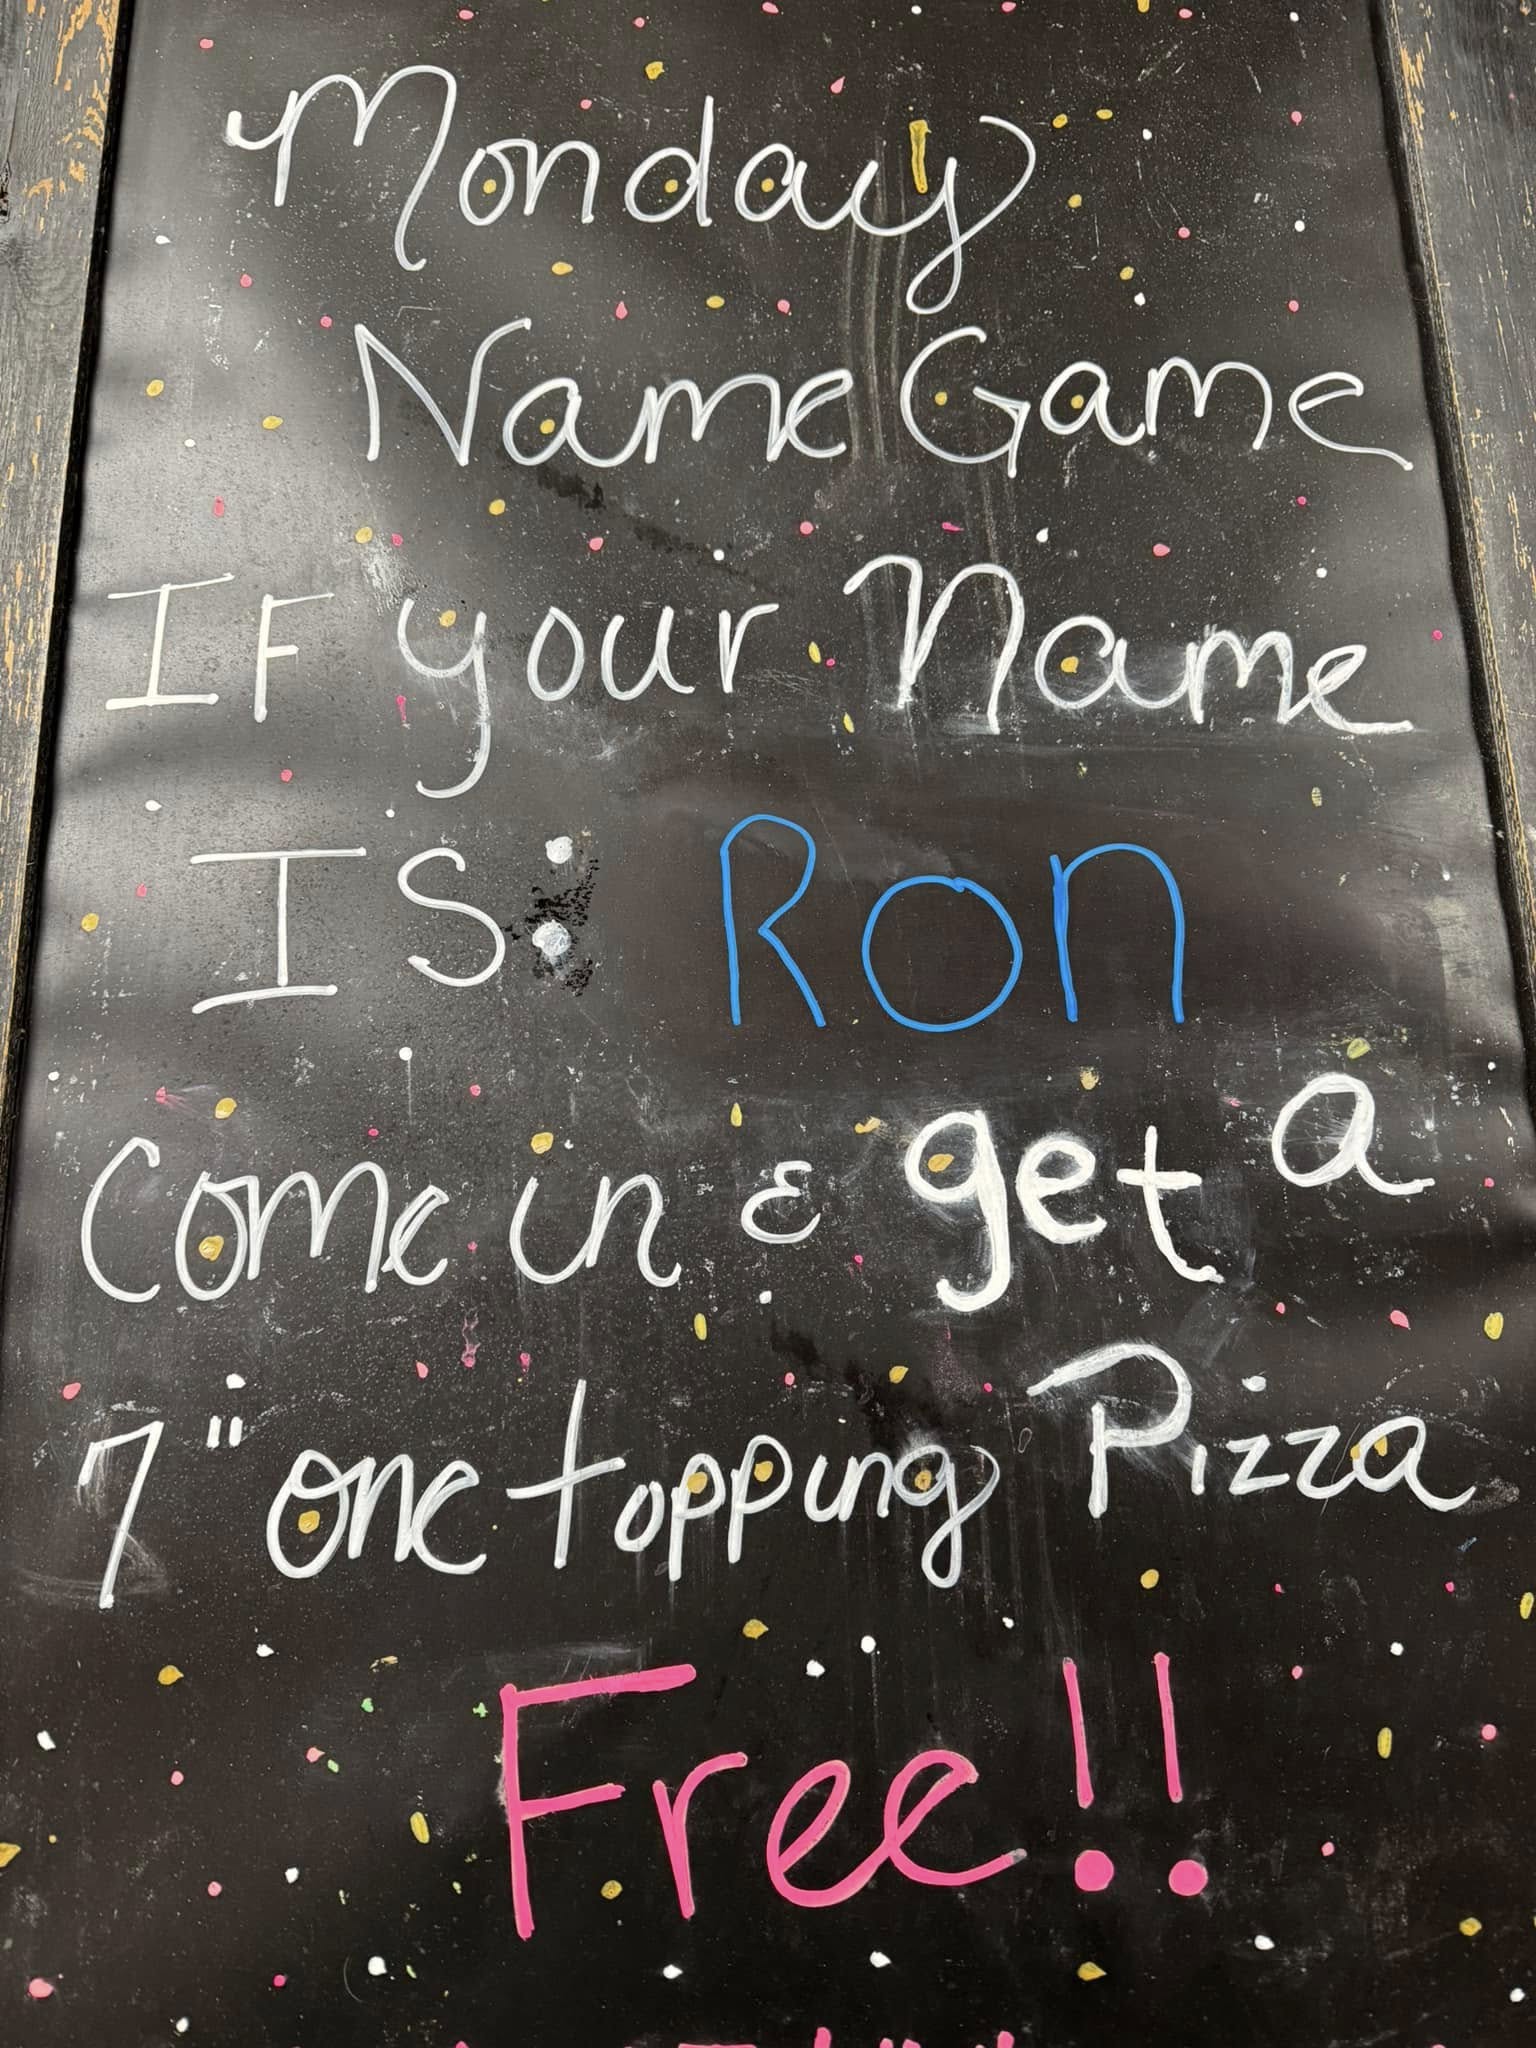 Monday
Name Game
IF your Name
IS: Ron
Come in & get a
7" one topping Pizza
Free!!